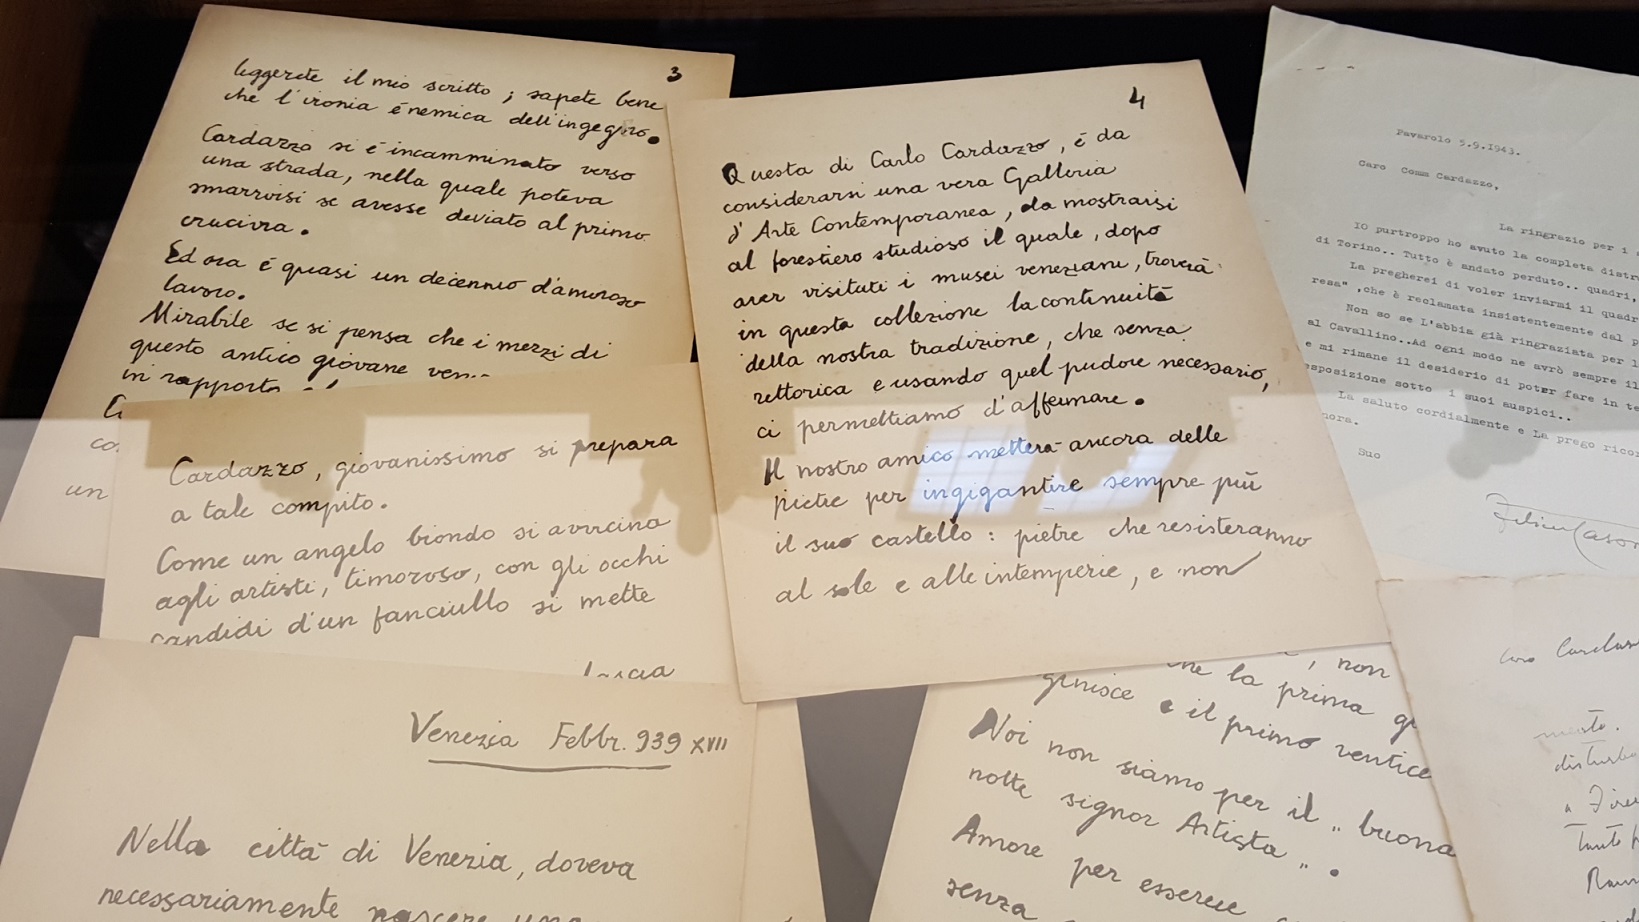 3
leggerete il mio scritto ; sapete bene
che l'ironia é nemica dell'ingegno.
Cardazzo si é incamminato verso
una strada, nella quale poteva
smarrirsi se avesse deviato al primo
crucivia.
Ed ora é quasi un decennio d'amoroso
lavoro.
Mirabile se si pensa che i mezzi di
questo antico giovane
in rapporto
un
Cardazzo, giovanissimo si prepara
a tale compito.
Come un angelo biondo si avvicina
agli artisti, timoroso, con gli occhi
candidi d'un fanciullo si mette
lascia
Venezia Febbr. 939 XVII
Nella cittá di Venezia, doveva
necessariamente nascere una
4
Questa di Carlo Cardazzo, é da
considerarsi una vera Galleria
d'Arte Contemporanea, da mostrarsi
al forestiero studioso il quale, dopo
aver visitati i musei veneziani, troverá
in questa collezione la continuitá
della nostra tradizione, che senza
rettorica e usando quel pudore necessario,
ci permettiamo d'affermare.
Il nostro amico metterá ancora delle
pietre per ingigantire sempre piú
il suo castello : pietre che resisteranno
al sole e alle intemperie, e non
, non
che la prima
ginisce e il primo ventice
Noi non siamo per il „ buona
notte signor Artista „ .
Amore per essere
senza
Pavarolo 5.9.1943.
Caro Comm Cardazzo,
La ringrazio per i
IO purtroppo ho avuto la completa distr
di Torino.. Tutto è andato perduto.. quadri,
La pregherei di voler inviarmi il quadr
resa" ,che è reclamata insistentemente dal p
Non so se L'abbia già ringraziata per l
al Cavallino..Ad ogni modo ne avrò sempre il
e mi rimane il desiderio di poter fare in te
esposizione sotto i suoi auspici..
La saluto cordialmente e La prego ricor
nora.
Suo
Felice Casor
Caro
disturbo
a Fire